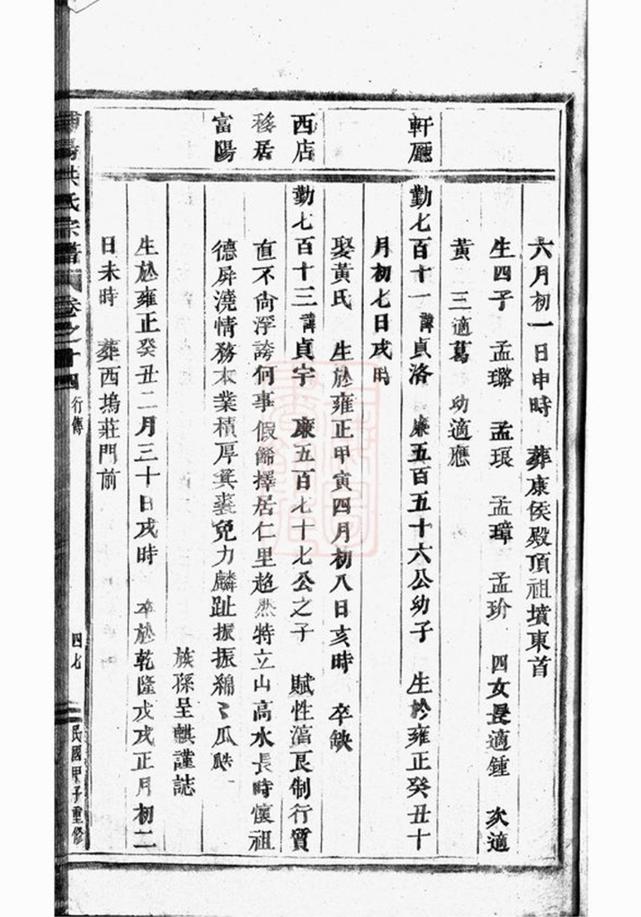 六月初一日申時　葬康侯殿頂祖墳東首
生四子　孟璐　孟琅　孟璋　孟玠　四女長適鍾　次適
黃　三適葛　幼適應
軒厅
勤七百十一　諱貞洛　康五百五十六公幼子　生於雍正癸丑十
月初七日戌時
娶黃氏　生於雍正甲寅四月初八日亥時　卒缺
西店
勤七百十三　諱貞宇　康五百七十七公之子　賦性溫良制行質
移居
直不尙浮誇何事假餙擇居仁里超然特立山高水長時懷祖
富陽
德屏澆情務本業積厚箕裘兒力麟趾振振綿〻瓜瓞
族孫呈麒謹誌
生於雍正癸丑二月三十日戌時　卒於乾隆戊戌正月初二
日未時　葬西塢莊門前
洪氏宗譜　卷之十四　行傳　四七　民國甲子重修